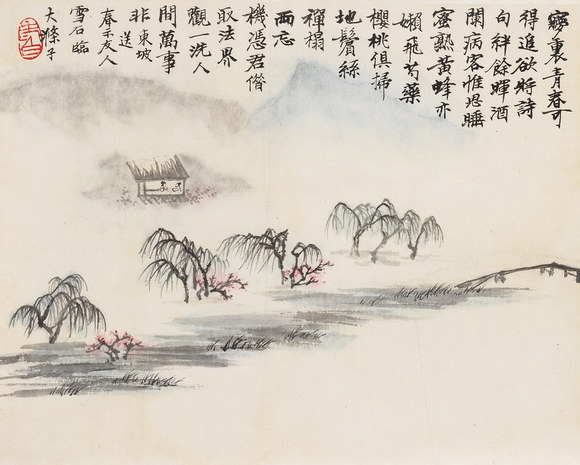 夢裏青春可
得追欲將詩
句絆餘暉酒
闌病客惟思睡
蜜熟黃蜂亦
嬾飛芍藥
櫻桃俱掃
地鬢絲
禪榻
兩忘
機憑君借
取法界
觀一洗人
間萬事
非東坡送
春示友人
雪石臨
大滌子